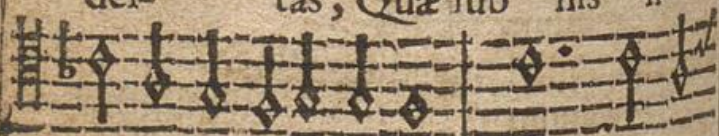 dei- tas, Quæ sub his